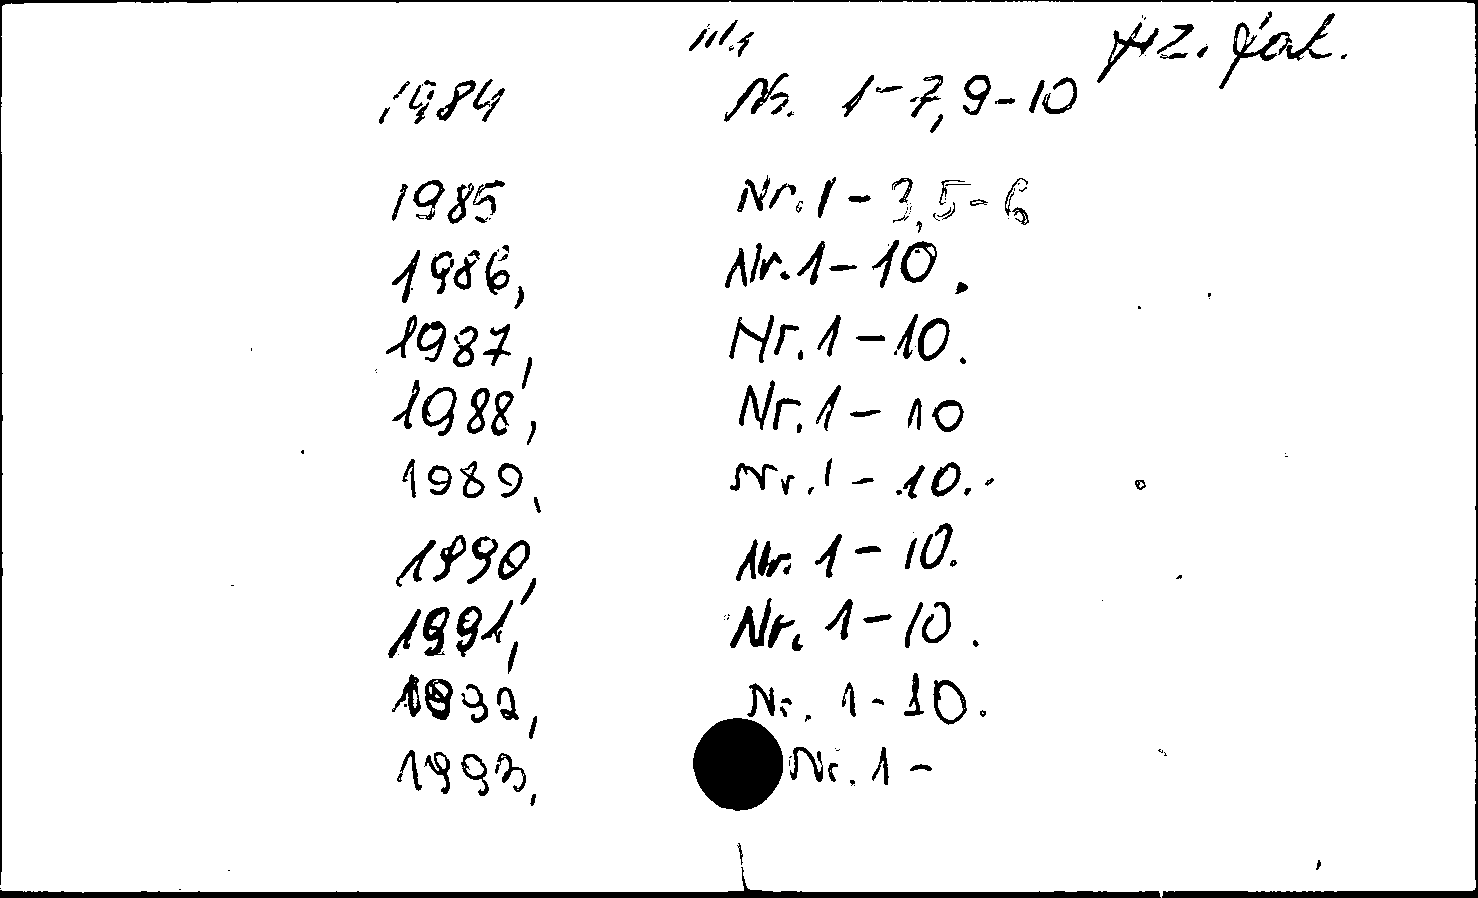 fiz. fak.
1984 Nr. 1-7, 9-10
1985 Nr. 1-3, 5-6
1986, Nr. 1-10.
1987, Nr. 1-10.
1988, Nr. 1-10
1989, Nr. 1-10.
1990, Nr. 1-10.
1991, Nr. 1-10.
1992, Nr. 1-10.
1993, Nr. 1-